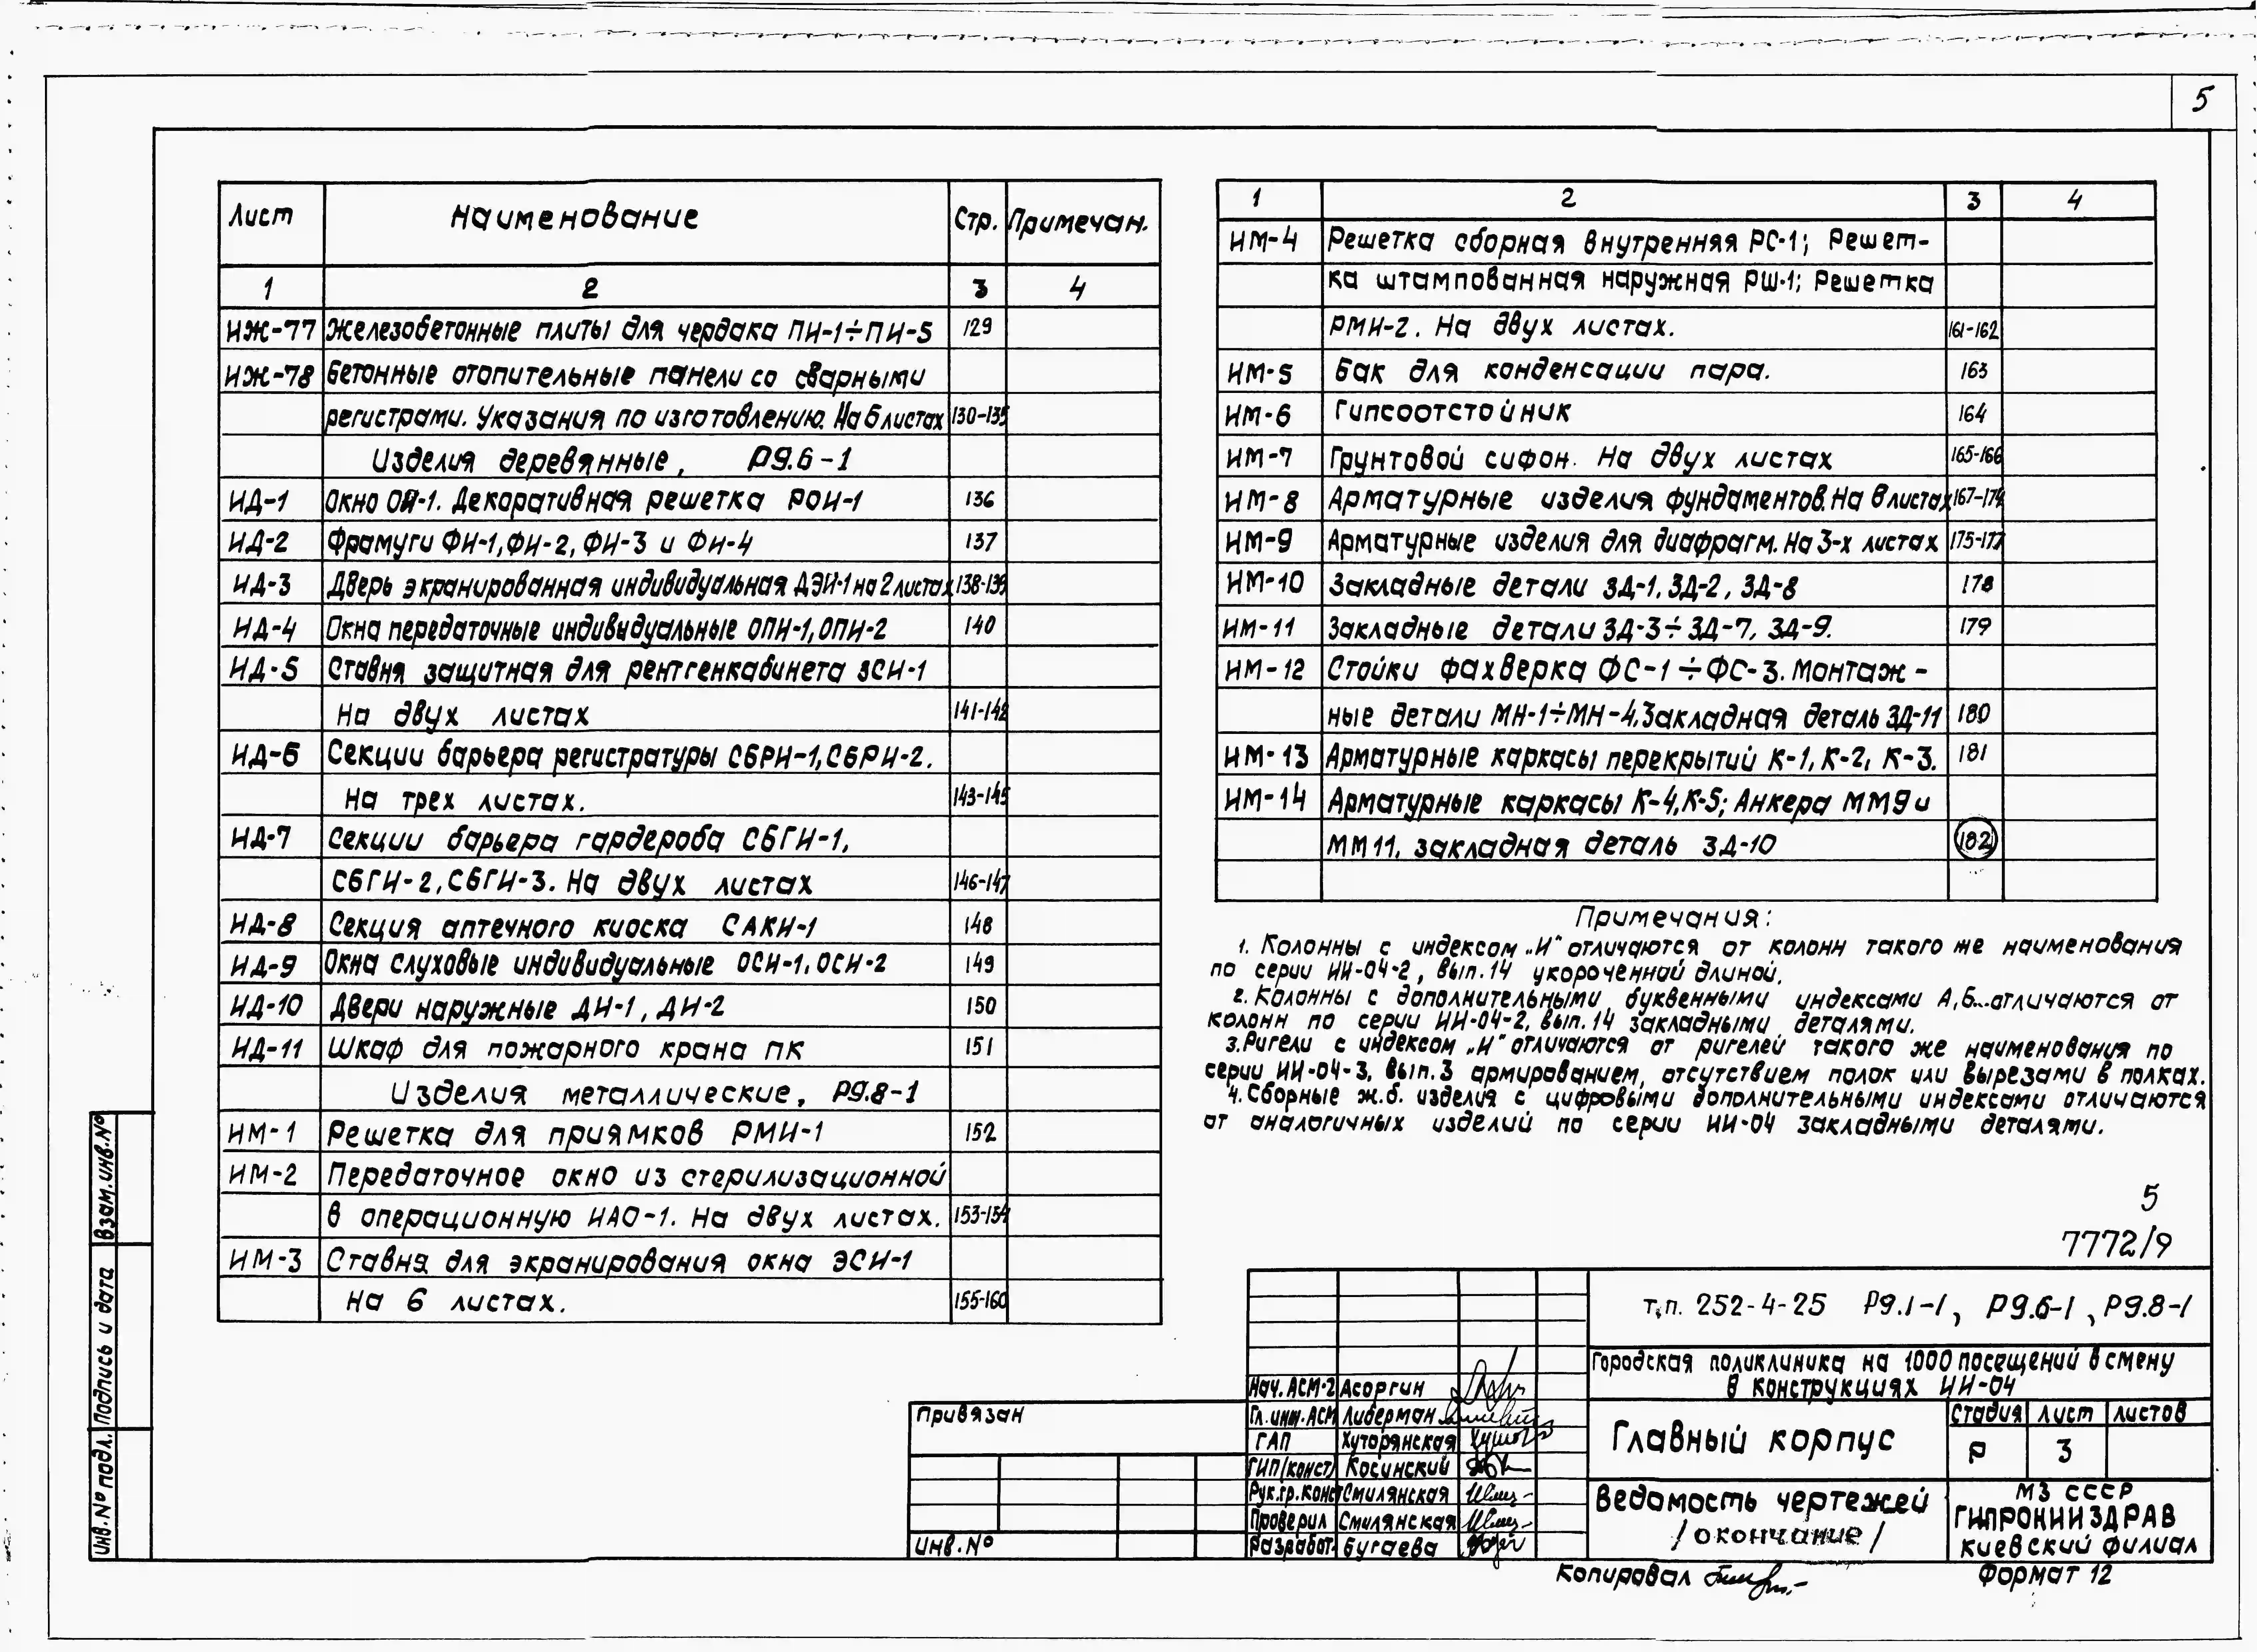 5
Лист Наименование Стр. Примечан.
1 2 3 4
ИЖ-77 Железобетонные плиты для чердака ПИ-1÷ПИ-5 129
ИЖ-78 Бетонные отопительные панели со сварными
регистрами. Указания по изготовлению. На 6 листах 130-135
Изделия деревянные, Р9.6-1
ИД-1 Окно ОИ-1. Декоративная решетка РОИ-1 136
ИД-2 Фрамуги ФИ-1, ФИ-2, ФИ-3 и ФИ-4 137
ИД-3 Дверь экранированная индивидуальная ДЭИ-1 на 2 листах 138-139
ИД-4 Окна передаточные индивидуальные ОПИ-1, ОПИ-2 140
ИД-5 Ставня защитная для рентгенкабинета ЗСИ-1
На двух листах 141-142
ИД-6 Секции барьера регистратуры СБРИ-1, СБРИ-2.
На трех листах. 143-145
ИД-7 Секции барьера гардероба СБГИ-1,
СБГИ-2, СБГИ-3. На двух листах 146-147
ИД-8 Секция аптечного киоска САКИ-1 148
ИД-9 Окна слуховые индивидуальные ОСИ-1, ОСИ-2 149
ИД-10 Двери наружные ДИ-1, ДИ-2 150
ИД-11 Шкаф для пожарного крана ПК 151
Изделия металлические, Р9.8-1
ИМ-1 Решетка для приямков РМИ-1 152
ИМ-2 Передаточное окно из стерилизационной
в операционную ИАО-1. На двух листах. 153-154
ИМ-3 Ставня для экранирования окна ЭСИ-1
На 6 листах. 155-160
1 2 3 4
ИМ-4 Решетка сборная внутренняя РС-1; Решет-
ка штампованная наружная РШ-1; Решетка
РМИ-2. На двух листах. 161-162
ИМ-5 Бак для конденсации пара. 163
ИМ-6 Гипсоотстойник 164
ИМ-7 Грунтовой сифон. На двух листах 165-166
ИМ-8 Арматурные изделия фундаментов. На 8 листах 167-174
ИМ-9 Арматурные изделия для диафрагм. На 3-х листах 175-177
ИМ-10 Закладные детали ЗД-1, ЗД-2, ЗД-8 178
ИМ-11 Закладные детали ЗД-3÷ЗД-7, ЗД-9. 179
ИМ-12 Стойки фахверка ФС-1÷ФС-3. Монтаж-
ные детали МН-1÷МН-4. Закладная деталь ЗД-11 180
ИМ-13 Арматурные каркасы перекрытий К-1, К-2, К-3. 181
ИМ-14 Арматурные каркасы К-4, К-5; Анкера ММ9 и
ММ11, закладная деталь ЗД-10 182
Примечания:
1. Колонны с индексом „И" отличаются от колонн такого же наименования
по серии ИИ-04-2, вып.14 укороченной длиной.
2. Колонны с дополнительными буквенными индексами А,Б... отличаются от
колонн по серии ИИ-04-2, вып.14 закладными деталями.
3. Ригели с индексом „И" отличаются от ригелей такого же наименования по
серии ИИ-04-3, вып.3 армированием, отсутствием полок или вырезами в полках.
4. Сборные ж.б. изделия с цифровыми дополнительными индексами отличаются
от аналогичных изделий по серии ИИ-04 закладными деталями.
5
7772/9
т.п. 252-4-25 Р9.1-1, Р9.6-1, Р9.8-1
Городская поликлиника на 1000 посещений в смену
в конструкциях ИИ-04
Нач. АСМ-2 Асоргин
Гл. инж. АСМ Либерман
ГАП Хуторянская
ГИП (конст) Косинский
Рук.гр. Конс Смилянская
Проверил Смилянская
Разработ. Бугаева
Главный корпус
Стадия Лист Листов
Р 3
Ведомость чертежей
/окончание/
МЗ СССР
ГИПРОНИИЗДРАВ
Киевский филиал
Привязан
Инв.№
Копировал
Формат 12
Взам. инв.№
Подпись и дата
Инв.№ подл.